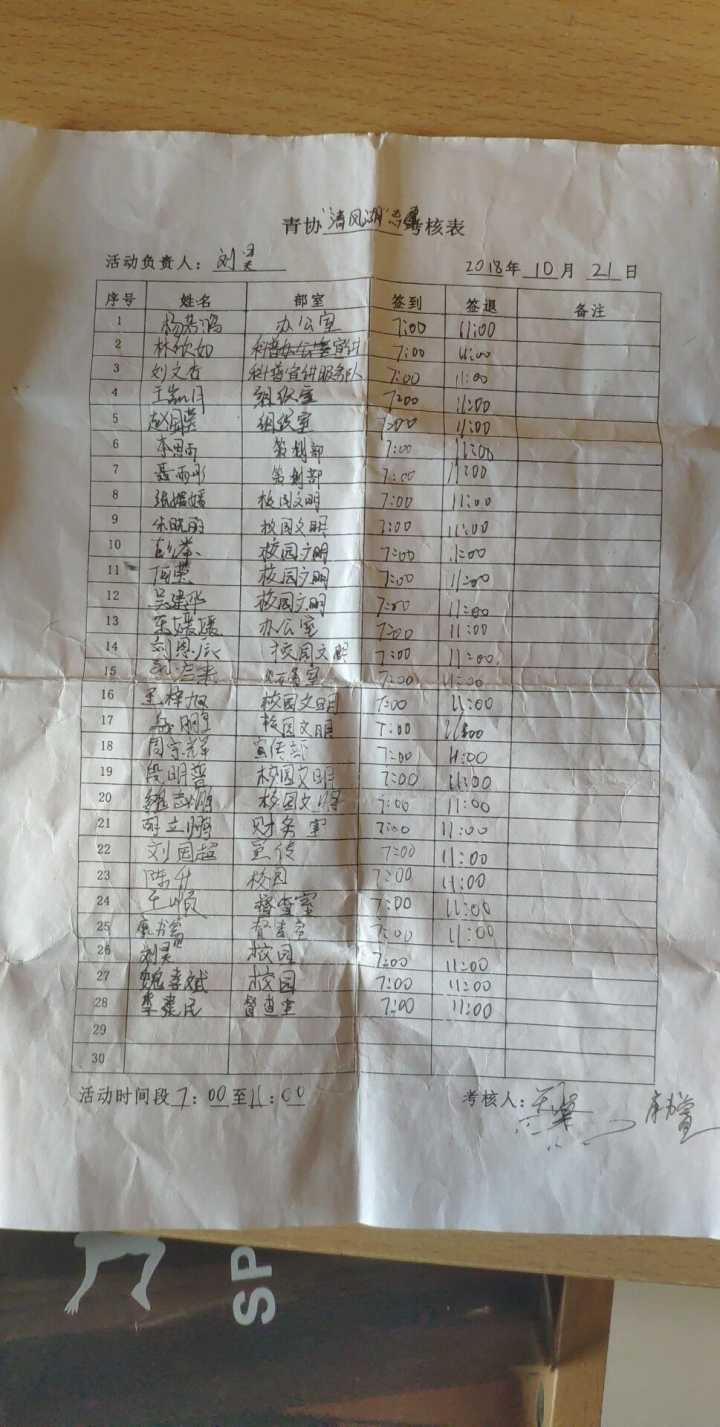 青协"清风湖"志愿考核表
活动负责人：刘昊 2018年10月21日
序号 姓名 部室 签到 签退 备注
1 杨若鸿 办公室 7:00 11:00
2 林欣如 科普宣讲 7:00 11:00
3 刘文杏 科普宣讲服务队 7:00 11:00
4 组织室 7:00 11:00
5 赵国荣 组织室 7:00 11:00
6 李思雨 策划部 7:00 11:00
7 聂雨彤 策划部 7:00 11:00
8 张媛媛 校园文明 7:00 11:00
9 朱晓丽 校园文明 7:00 11:00
10 彭举 校园文明 7:00 11:00
11 校园文明 7:00 11:00
12 吴建华 校园文明 7:00 11:00
13 朱媛媛 办公室 7:00 11:00
14 刘恩辰 校园文明 7:00 11:00
15 7:00 11:00
16 王梓旭 校园文明 7:00 11:00
17 校园文明 7:00 11:00
18 周宗辉 宣传部 7:00 11:00
19 段明普 校园文明 7:00 11:00
20 魏志鹏 校园文明 7:00 11:00
21 胡立鹏 财务室 7:00 11:00
22 刘国超 宣传 7:00 11:00
23 陈升 校园 7:00 11:00
24 王顺 督查室 7:00 11:00
25 督查室 7:00 11:00
26 刘昊 校园 7:00 11:00
27 魏孝斌 校园 7:00 11:00
28 李建民 督查室 7:00 11:00
29
30
活动时间段 7:00至11:00 考核人：
SP